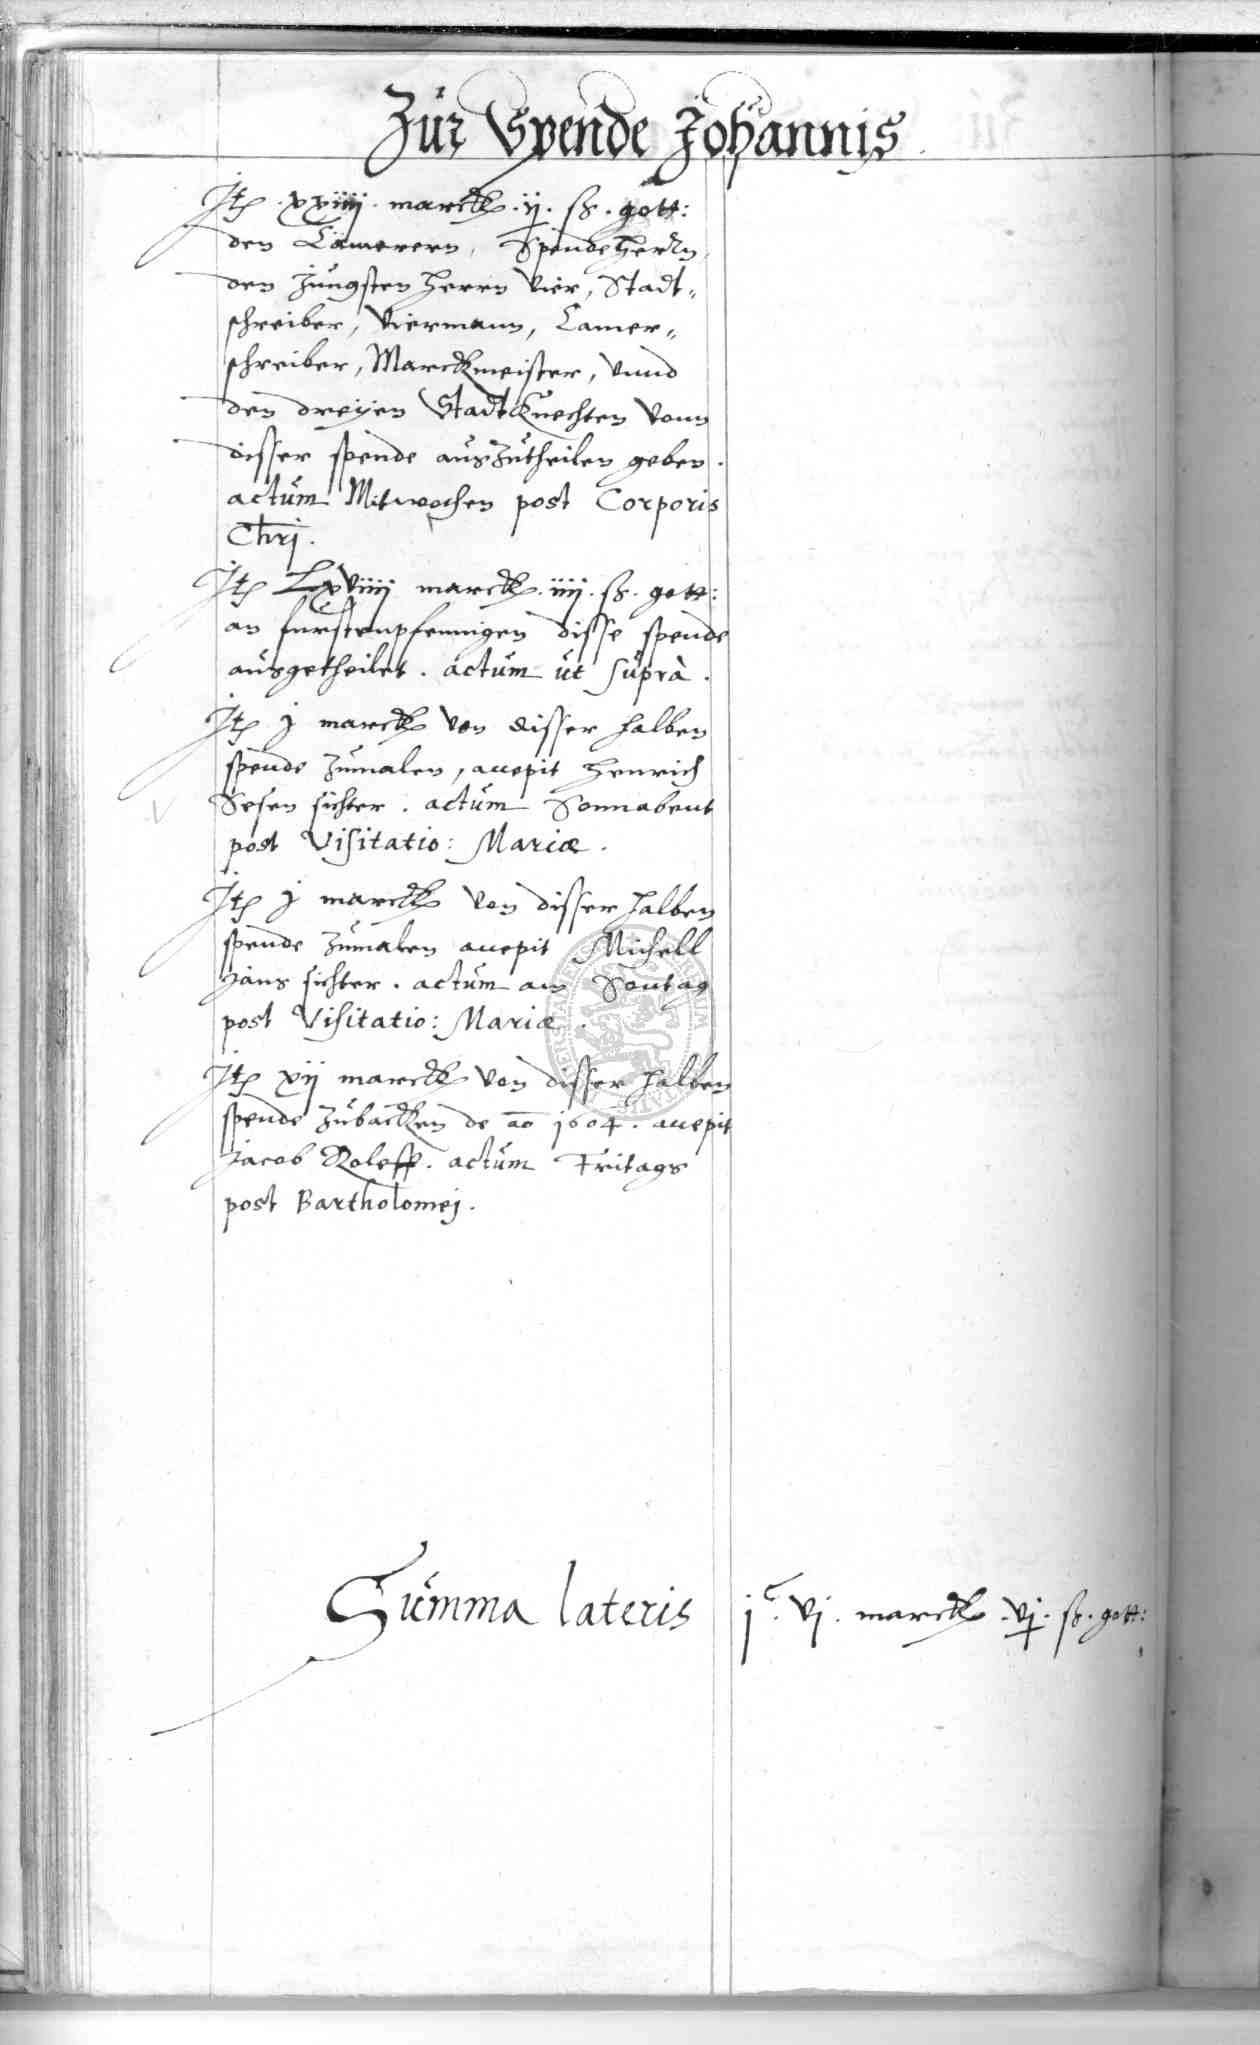 Zur Spende Johannis
Jtē xxiiii marck ij ß gott:
den Camerern, Spendeherrn,
den Jungsten herrn Vier, Stadt„
schreiber, Viermann, Camer„
schreiber, Marckmeister, vnnd
den dreyen Stadtknechten vonn
disser spende auszutheilen geben.
actum Mitwochen post Corporis
Chrj.
Jtē Lxviiii marck iiij ß gott:
an furstenpfennigen disse spende
ausgetheilet. actum ut suprà.
Jtē j marck von disser halben
spende zumalen, accepit Henrich
Sesen sichter. actum Sonnabent
post Visitatio: Mariæ.
Jtē j marck von disser halben
spende zumalen accepit Michell
Jans sichter. actum am Sontag
post Visitatio: Mariæ.
Jtē xij marck von disser halben
spende zubacken de ao 1604. accepit
Jacob Roleff. actum Fritags
post Bartholomej.
Summa lateris jᶜ. vj. marck vj. ß. gott: